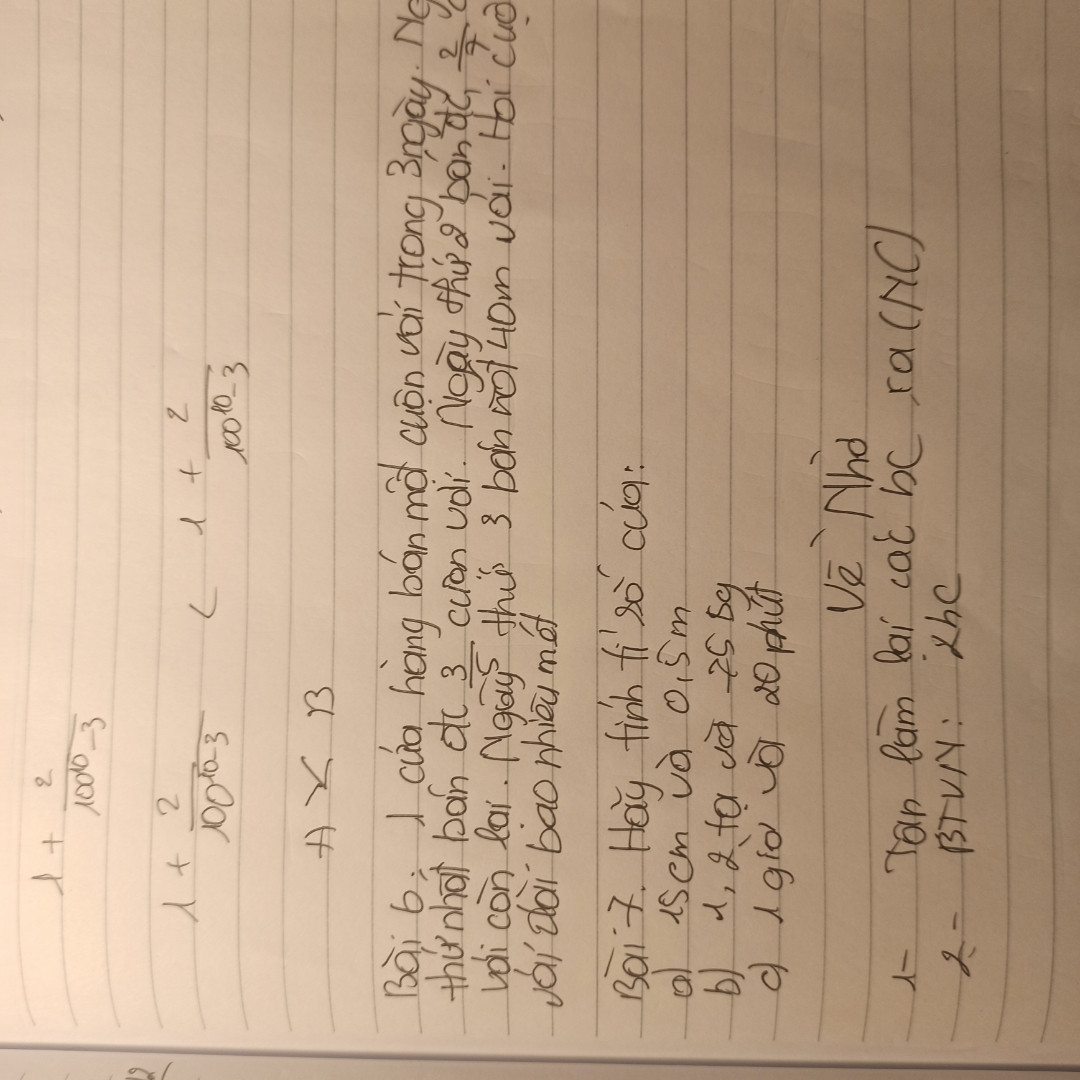 1 + 2/(100^10 - 3)
1 + 2/(100^10 - 3) < 1 + 2/(100^10 - 3)
A < B
Bài 6: 1 cửa hàng bán một cuộn vải trong 3 ngày. Ng
thứ nhất bán đc 3/5 cuộn vải. Ngày thứ 2 bán đc 2/7
vải còn lại. Ngày thứ 3 bán nốt 40m vải. Hỏi cuộ
vải dài bao nhiêu mét
Bài 7. Hãy tính tỉ số của:
a) 15cm và 0,5m
b) 1,2 tạ và 75 kg
c) 1 giờ và 20 phút
Về Nhà
1- làm lại các bC ra (NC)
2- BTVN: